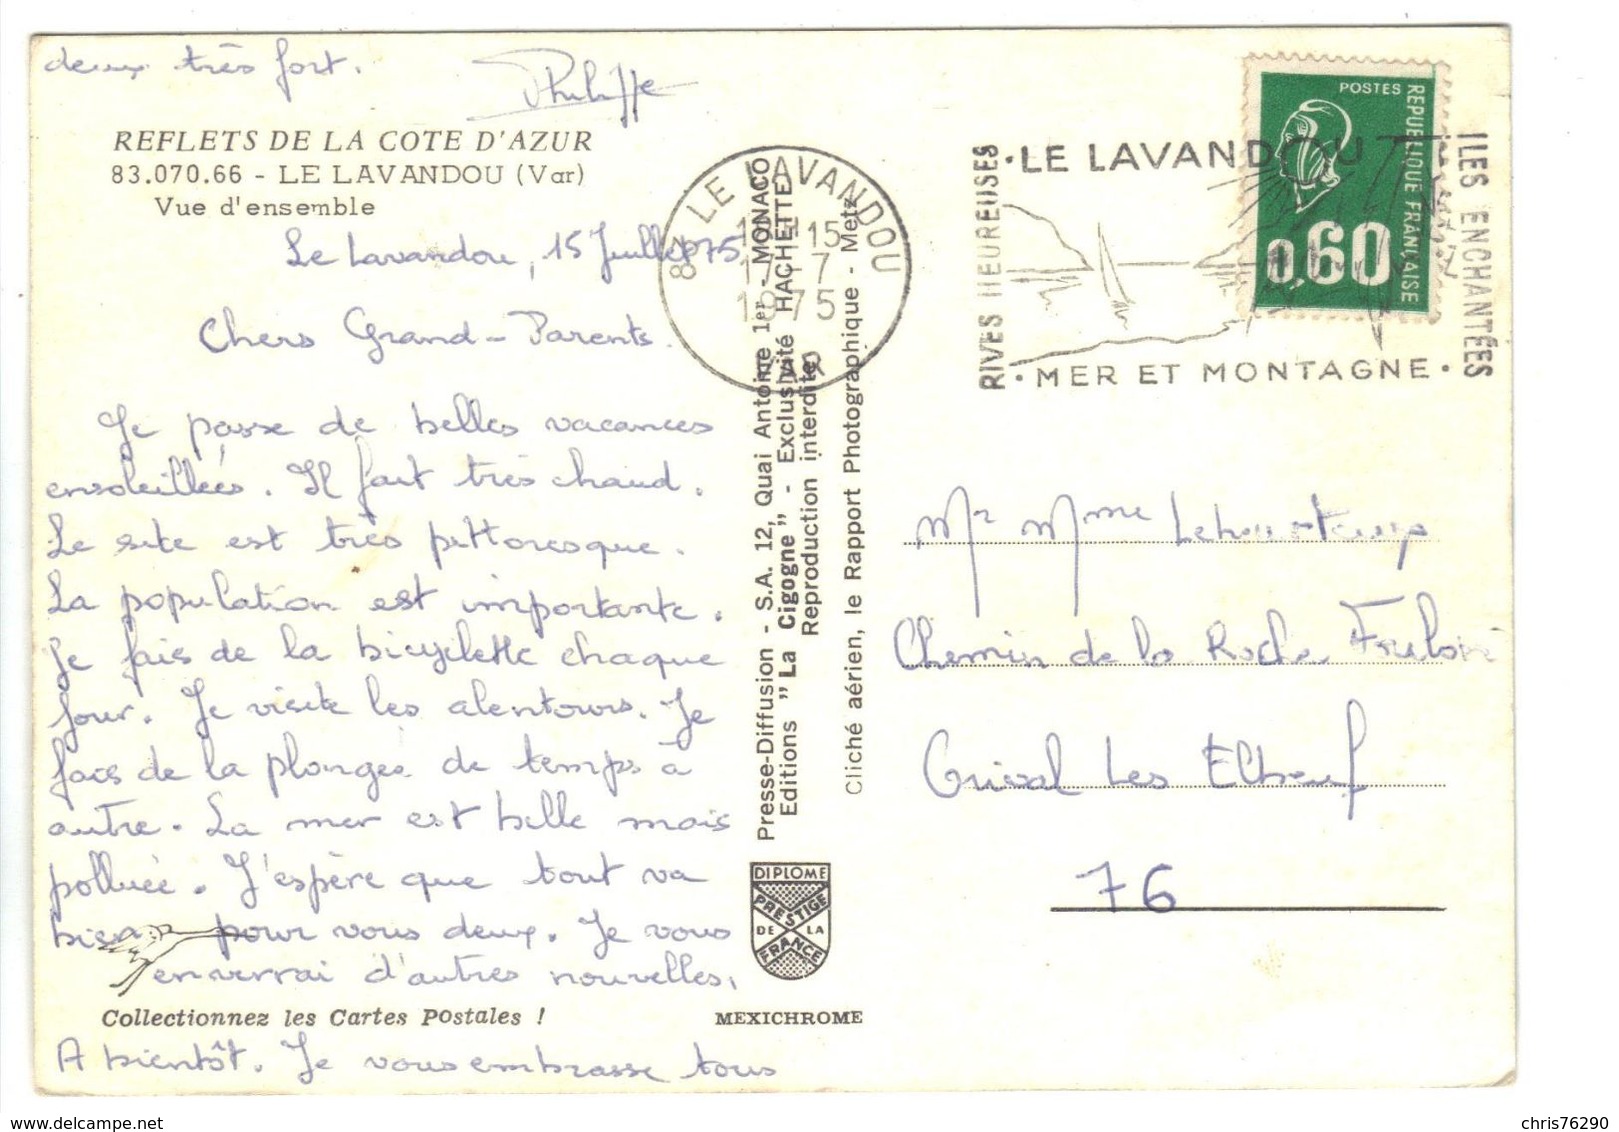 deux très fort.
Philippe
REFLETS DE LA COTE D'AZUR
83.070.66 - LE LAVANDOU (Var)
Vue d'ensemble
Le Lavandou, 15 Juillet 75
Chers Grand-Parents.
Je passe de belles vacances
ensoleillées. Il fait très chaud.
Le site est très pittoresque.
La population est importante.
Je fais de la bicyclette chaque
jour. Je visite les alentours. Je
fais de la plongée de temps à
autre. La mer est belle mais
polluée. J'espère que tout va
bien pour vous deux. Je vous
enverrai d'autres nouvelles.
Collectionnez les Cartes Postales !
MEXICHROME
A bientôt. Je vous embrasse tous
Presse-Diffusion - S.A. 12, Quai Antoine 1er - MONACO
Editions "La Cigogne" - Exclusivité HACHETTE
Reproduction interdite
Cliché aérien, le Rapport Photographique - Metz
DIPLOME
PRESTIGE
DE LA
FRANCE
83 LE LAVANDOU
15
17-7
1975
VAR
RIVES HEUREUSES
• LE LAVANDOU
ILES ENCHANTÉES
• MER ET MONTAGNE •
POSTES
REPUBLIQUE FRANÇAISE
0,60
Mr Mme
Chemin de la Roche
Les Elbeuf
76
chris76290